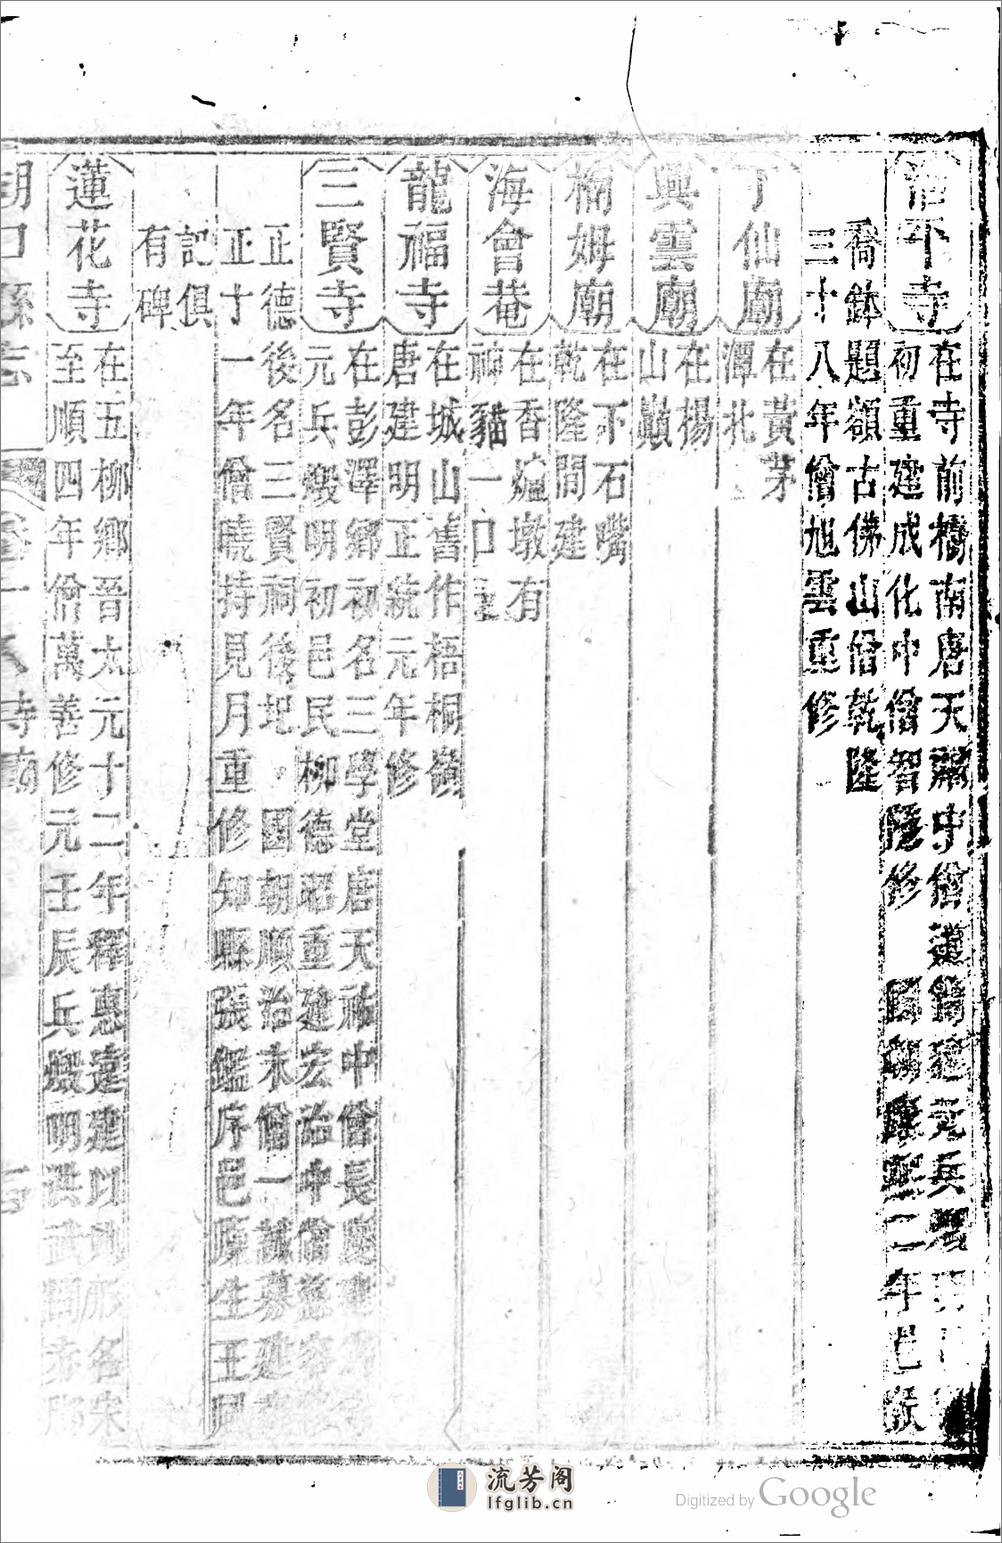 寺
在寺前橋南唐天祐中僧道建元兵燬明
初重建成化中僧智隱修 國朝康熙二年邑
喬鉢題額古佛山僧乾隆
三十八年僧旭雲重修
丁仙廟
在黃茅
潭北
興雲廟
在楊
山巔
楠姆廟
在下石嘴
乾隆間建
海會菴
在香爐墩有
神貓一口
龍福寺
在城山舊作梧桐嶺
唐建明正統元年修
三賢寺
在彭澤鄉初名三學堂唐天祐中僧長慶
元兵燬明初邑民柳德昭重建宏治中僧慈容
正德後名三賢祠後圮 國朝順治末僧一誠募建
正十一年僧曉持見月重修知縣張鑑序邑廩生王
記俱
有碑
蓮花寺
在五柳鄉晉太元十二年釋惠遠建以地形名宋
至順四年僧萬善修元壬辰兵燬明洪武間
湖口縣志
卷十
寺廟
流芳阁
lfglib.cn
Digitized by Google